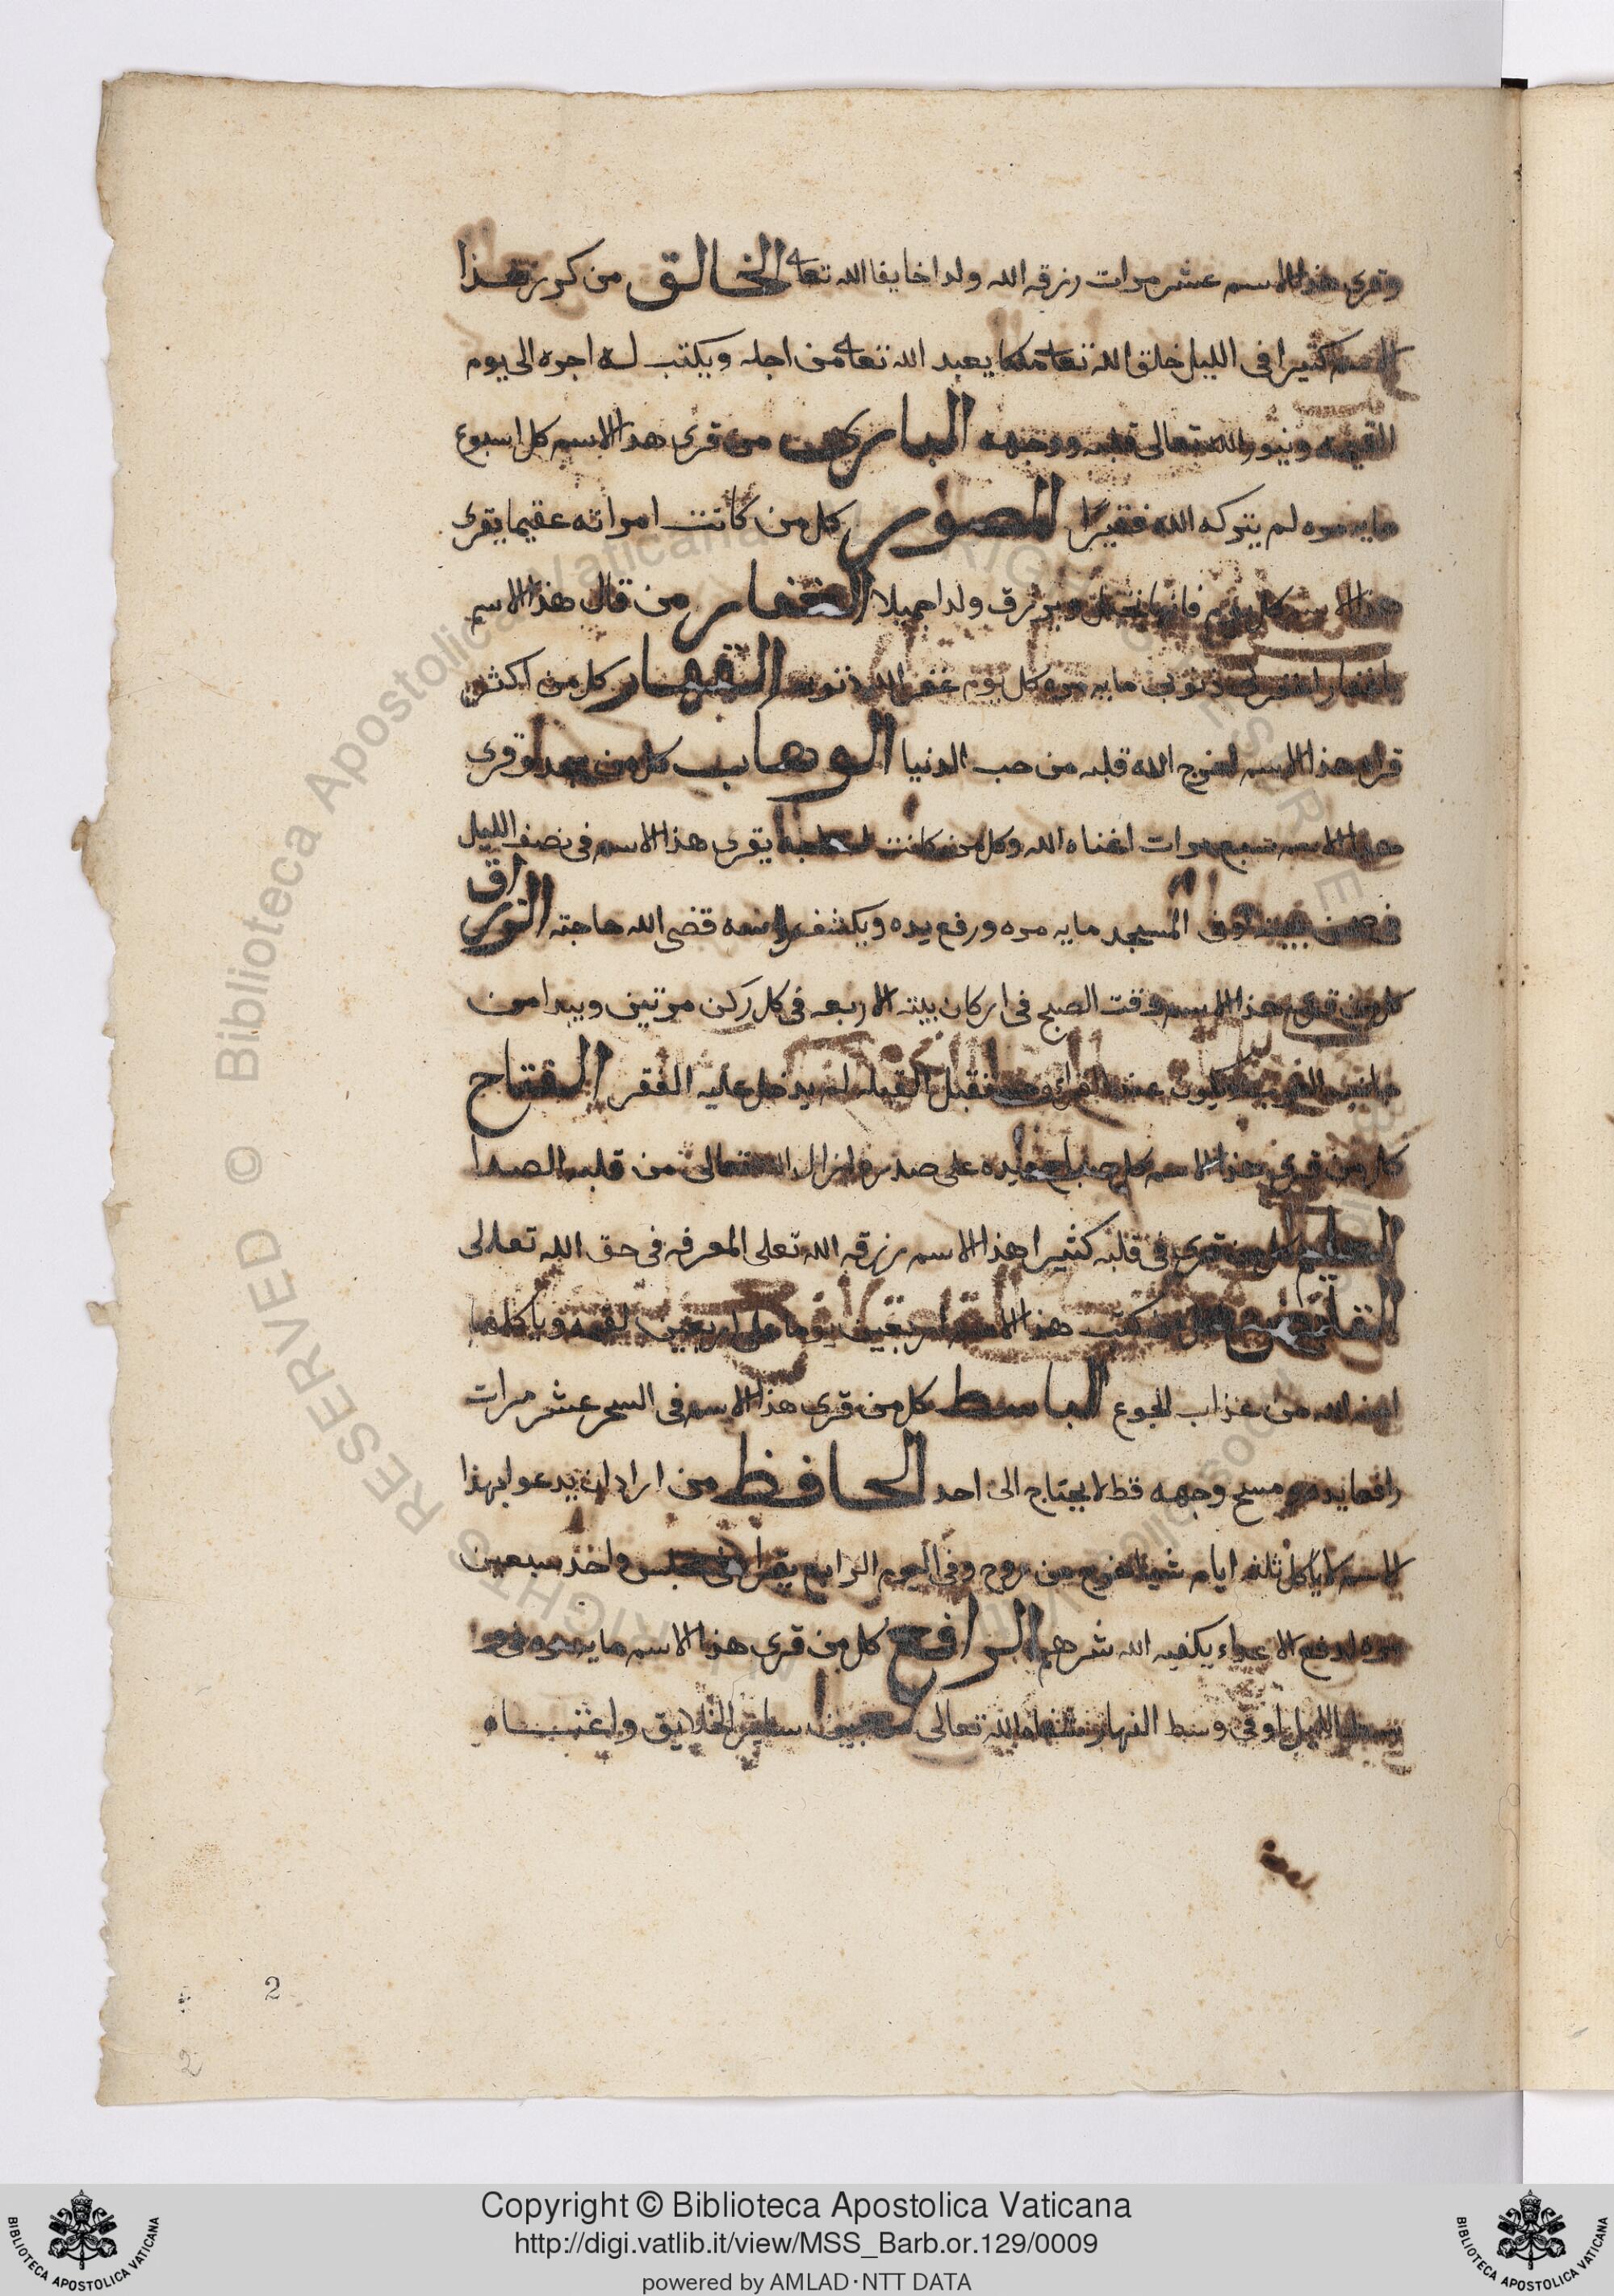 وقرى هذا الاسم عشر مرات رزقه الله ولدا خايفا الله تعا الخالق من كرر هذا
الاسم كثيرا فى الليل خلق الله تعا ملكا يعبد الله تعا من اجله ويكتب له اجره الى يوم
القيمه وينور الله تعالى قلبه ووجهه البارى من قرى هدا الاسم كل اسبوع
مايه مره لم يتركه الله فقيرا المصور كل من كانت امراته عقيما يقرى
هذا الاسم كل يوم فانها تحبل ويرزق ولدا جميلا الغفار من قال هذا الاسم
يا غفار اغفر لى ذنوبى مايه مره كل يوم غفر الله ذنوبه القهار كل من اكثر
قراه هذا الاسم اخرج الله قلبه من حب الدنيا الوهاب كل من وقرى
هذا الاسم سبع مرات اغناه الله وكل من كانت يقرى هذا الاسم فى نصف الليل
فى صحن بيته او فى المسجد مايه مره ورفع يده ويكشف راسه قضى الله حاجته الرزاق
كل من قرى هذا الاسم وقت الصبح فى اركان بيته الاربعه فى كل ركن مرتين ويبدا من
القبله لم يدخل عليه الفقر الفتاح
كل من قرى هذا الاسم كل صباح ويده على صدره ازال الله تعالى من قلبه الصدا
العليم كل من قرى فى قلبه كثيرا هذا الاسم رزقه الله تعلى المعرفه فى حق الله تعالى
القابض كل من كتب هذا الاسم اربعين يوما على اربعين لقمه وياكلها
امنه الله من عذاب الجوع الباسط كل من قرى هذا الاسم فى السحر عشر مرات
رافعا يده مسح وجهه قط لا يحتاج الى احد الحافظ من اراد ان يدعوا بهذا
الاسم لا ياكل ثلثه ايام شيا يخرج من روح وفى اليوم الرابع يقرا فى مجلس واحد سبعين
مره لدفع الاعداء يكفيه الله شرهم الرافع كل من قرى هذا الاسم مايه مره فى
وسط الليل او فى وسط النهار الله تعالى سائر الخلايق واغناه
2
2
Copyright © Biblioteca Apostolica Vaticana
http://digi.vatlib.it/view/MSS_Barb.or.129/0009
powered by AMLAD·NTT DATA